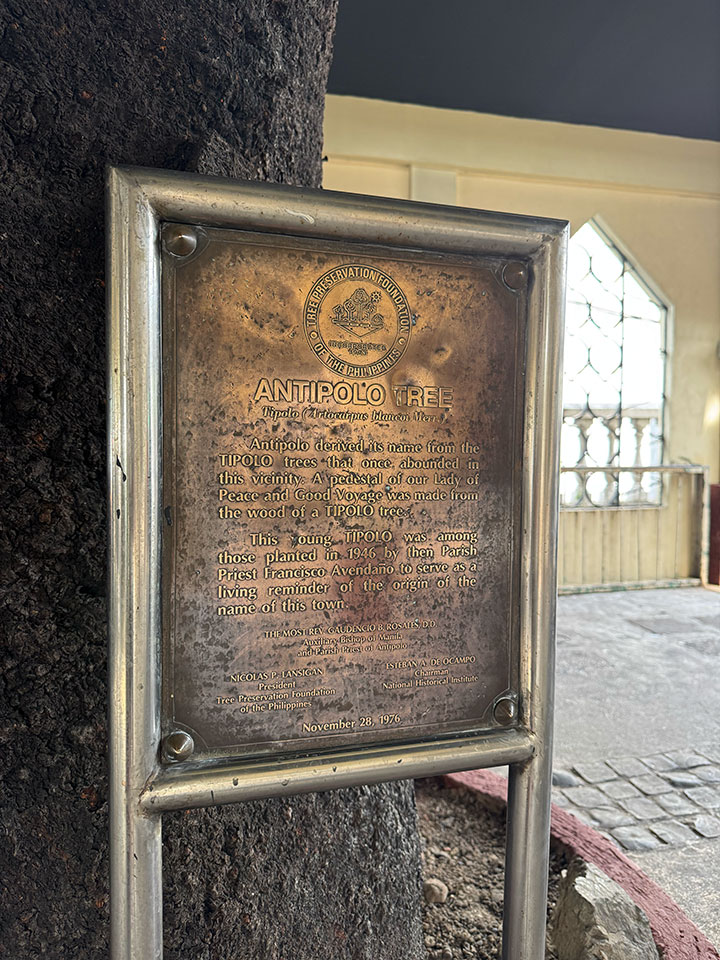 TREE PRESERVATION FOUNDATION
OF THE PHILIPPINES
ANTIPOLO TREE
Tipolo (Artocarpus blancoi Merr.)
Antipolo derived its name from the
TIPOLO trees that once abounded in
this vicinity. A pedestal of our Lady of
Peace and Good Voyage was made from
the wood of a TIPOLO tree.
This young TIPOLO was among
those planted in 1946 by then Parish
Priest Francisco Avendaño to serve as a
living reminder of the origin of the
name of this town.
THE MOST REV. GAUDENCIO B. ROSALES, D.D.
Auxiliary Bishop of Manila
and Parish Priest of Antipolo
NICOLAS P. LANSIGAN
President
Tree Preservation Foundation
of the Philippines
ESTEBAN A. DE OCAMPO
Chairman
National Historical Institute
November 28, 1976